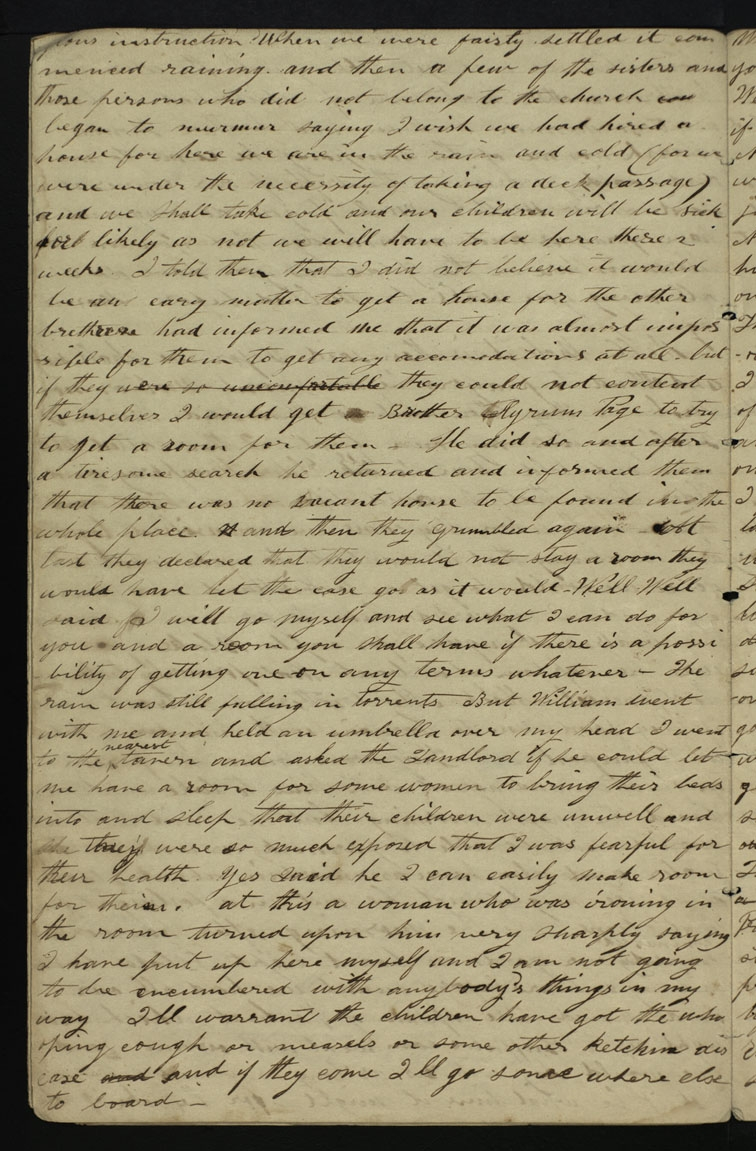 ious instruction When we were fairly settled it com
menced raining. and then a few of the sisters and
those persons who did not belong to the church
began to murmur saying I wish we had hired a
house for here we are in the rain and cold (for we
were under the necessity of taking a deck passage)
and we shall take cold and our children will be sick
likely as not we will have to be here there 2
weeks. I told them that I did not believe it would
be an easy matter to get a house for the other
brethren had informed me that it was almost impos
sible for them to get any accomodations at all. but
if they were so uncomfortable they could not content
themselves I would get Brother Hyrum Page to try
to get a room for them - He did so and after
a tiresome search he returned and informed them
that there was no vacant house to be found in the
whole place. and then they grumbled again at
last they declared that they would not stay a room they
would have let the case go as it would - Well Well
said I will go myself and see what I can do for
you and a room you shall have if there is a possi
-bility of getting one on any terms whatever - The
rain was still falling in torrents But William went
with me and held an umbrella over my head I went
to the nearest tavern and asked the Landlord if he could let
me have a room for some women to bring their beds
into and sleep that their children were unwell and
they were so much exposed that I was fearful for
their health. Yes said he I can easily make room
for them. at this a woman who was ironing in
the room turned upon him very sharply saying
I have put up here myself and I am not going
to be encumbered with anybody's things in my
way I'll warrant the children have got the whoo
oping cough or measels or some other ketchin dis
ease and and if they come I ll go some where else
to board -